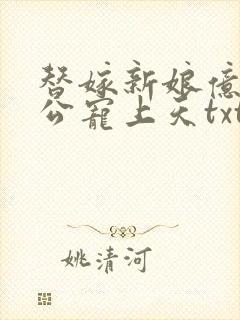 替嫁新娘億
公寵上天txt
姚清河